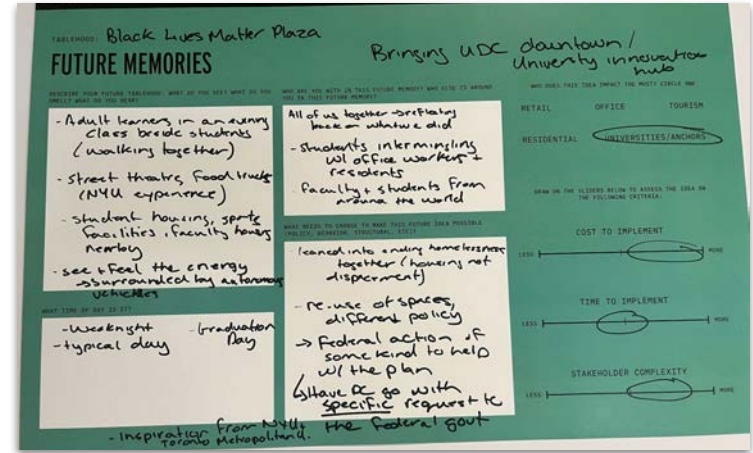 TABLEHOOD: Black Lives Matter Plaza
FUTURE MEMORIES
Bringing UDC downtown/
University innovation
hub
DESCRIBE YOUR FUTURE TABLEHOOD: WHAT DO YOU SEE? WHAT DO YOU
SMELL? WHAT DO YOU HEAR?
- Adult learners in an evening
class beside students
(walking together)
- street theatre, food trucks
(NYU experience)
- student housing, sports
facilities, faculty housing
nearby
- see + feel the energy
→ surrounded by autonomous
vehicles
WHAT TIME OF DAY IS IT?
- Weeknight
- typical day
- Graduation
Day
WHO ARE YOU WITH IN THIS FUTURE MEMORY? WHO ELSE IS AROUND
YOU IN THIS FUTURE MEMORY?
All of us together → reflecting
back on what we did
- students intermingling
w/ office workers +
residents
- faculty + students from
around the world
WHAT NEEDS TO CHANGE TO MAKE THIS FUTURE IDEA POSSIBLE
(POLICY, BEHAVIOR, STRUCTURAL, ETC)?
- leaned into ending homelessness
together (housing not
disperment)
- re-use of spaces,
different policy
→ Federal action of
some kind to help
w/ the plan
↳ Have DC go with
specific request to
the federal govt
- Inspiration from NYU +
Toronto Metropolitan U.
WHO DOES THIS IDEA IMPACT THE MOST? CIRCLE ONE
RETAIL OFFICE TOURISM
RESIDENTIAL UNIVERSITIES/ANCHORS
DRAW ON THE SLIDERS BELOW TO ASSESS THE IDEA ON
THE FOLLOWING CRITERIA.
COST TO IMPLEMENT
LESS MORE
TIME TO IMPLEMENT
LESS MORE
STAKEHOLDER COMPLEXITY
LESS MORE